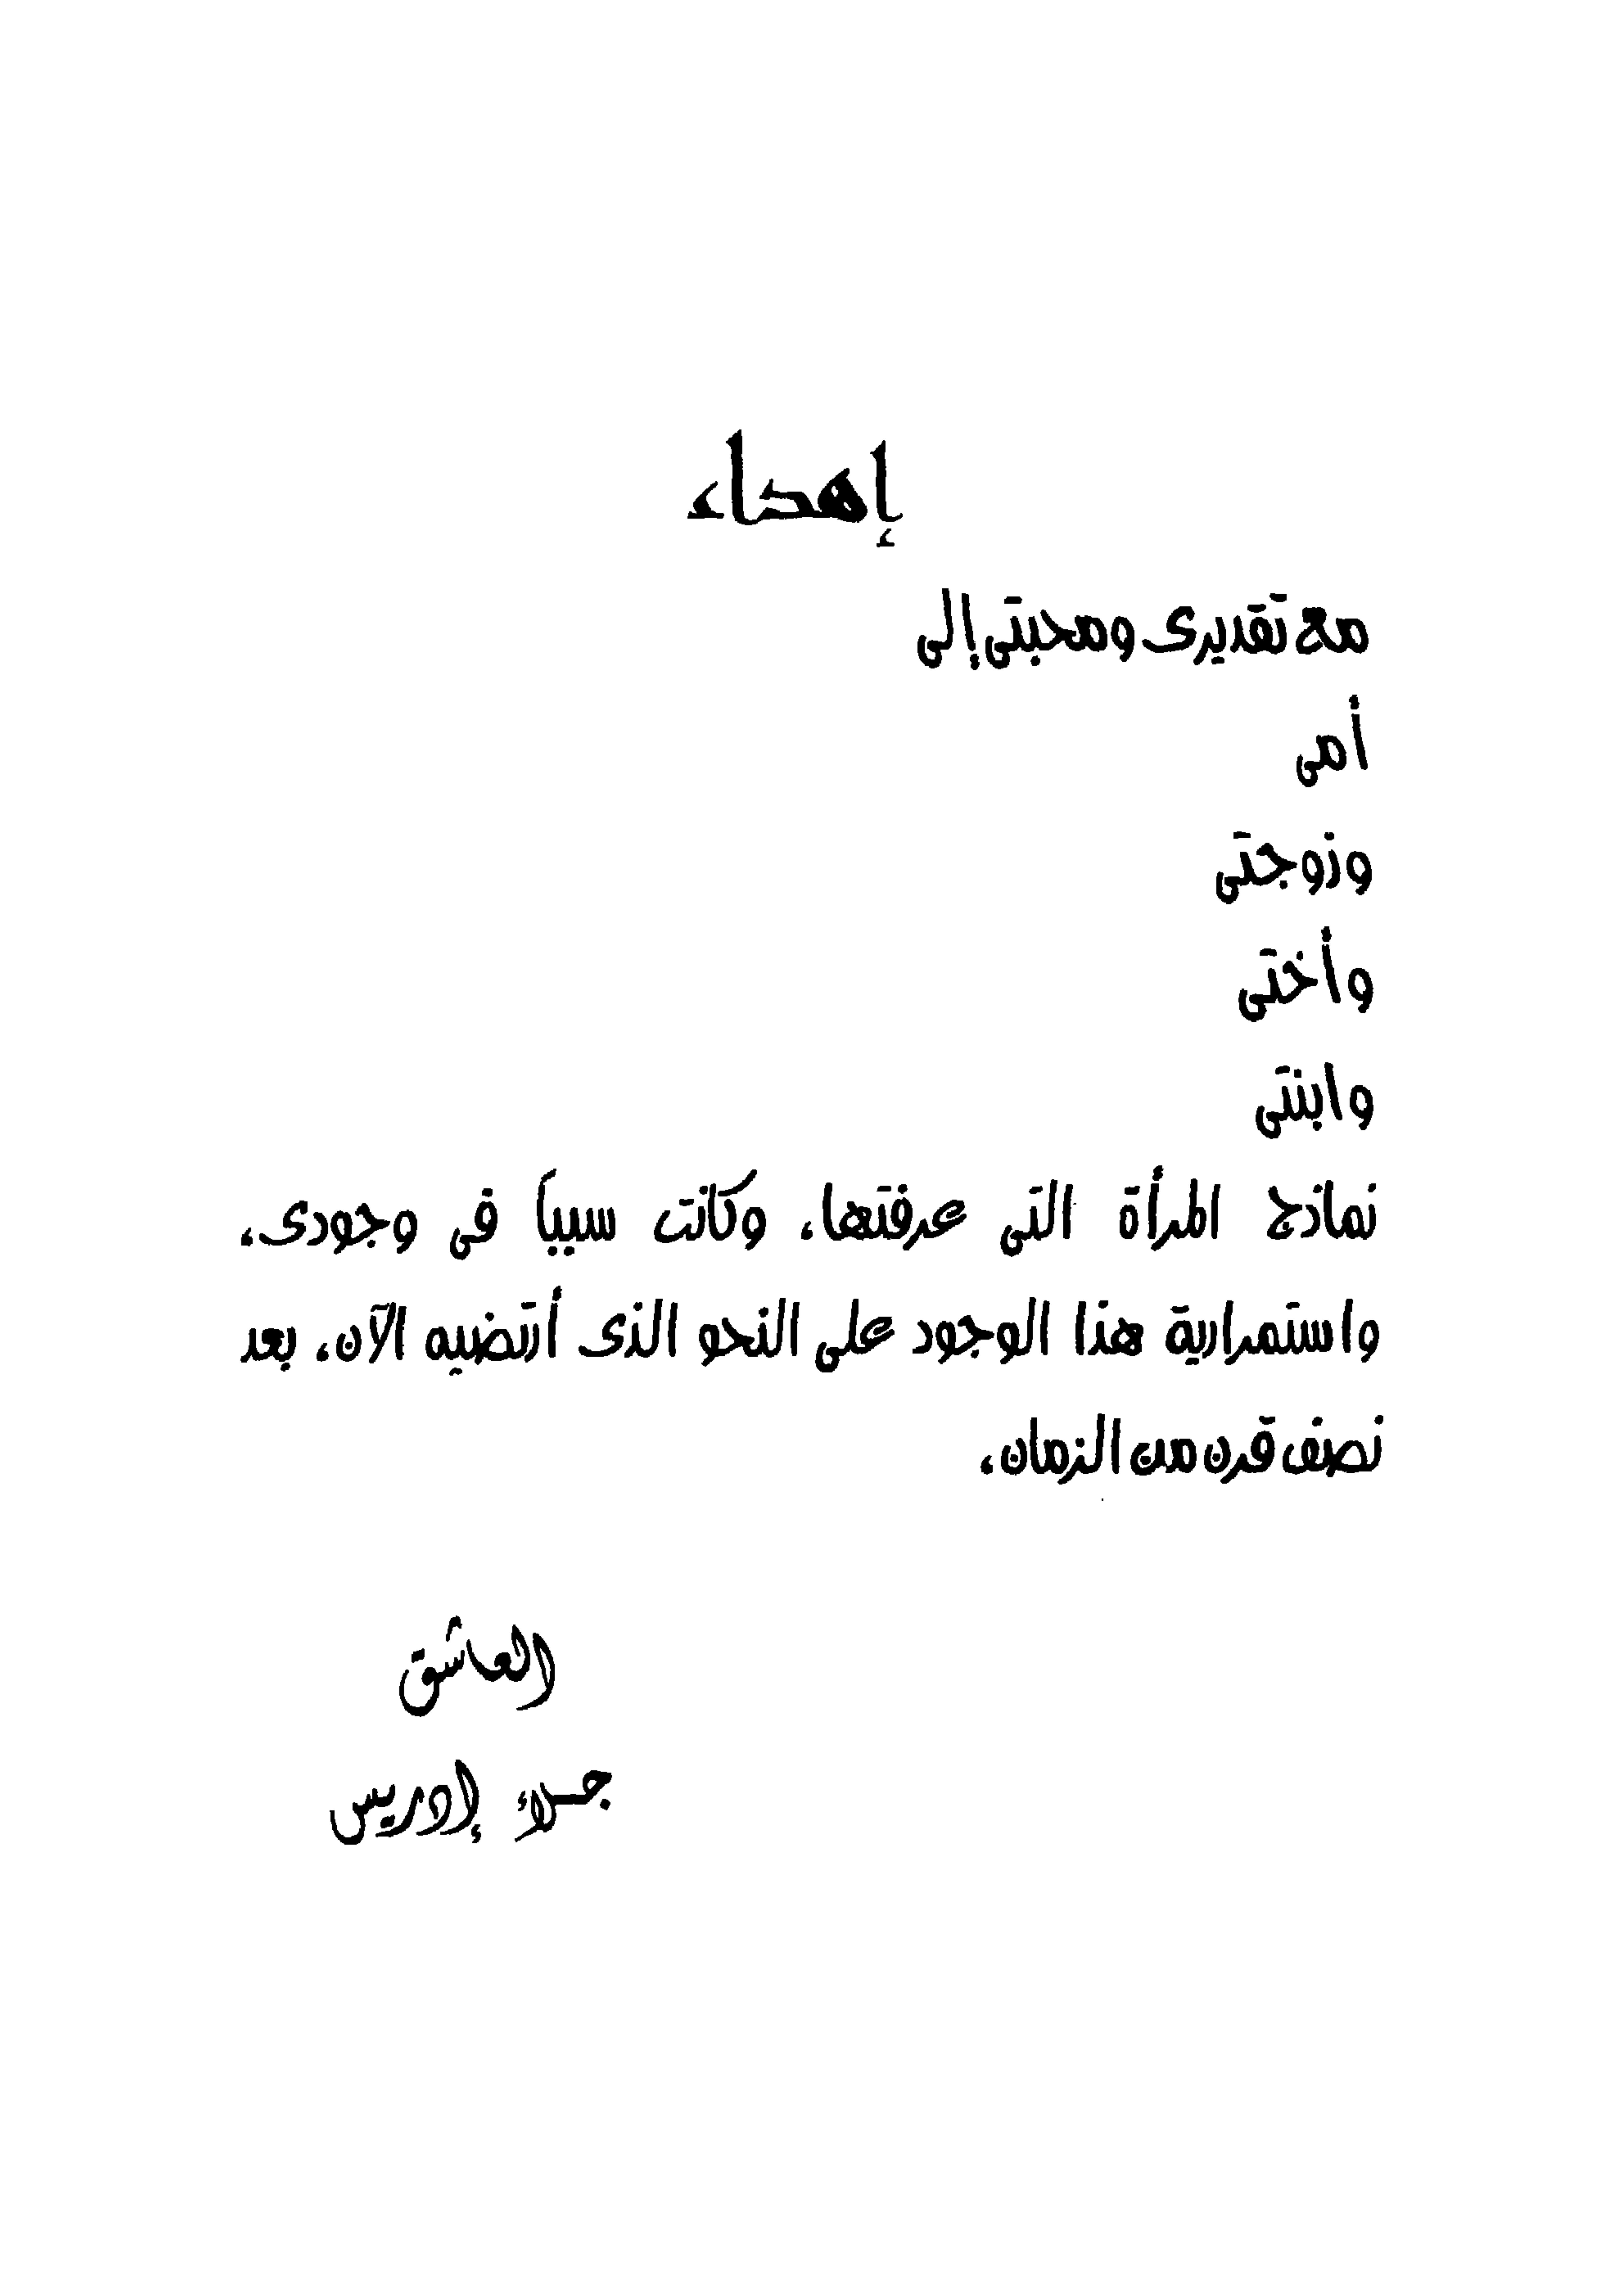 إهداء
مع تقديرى ومحبتى إلى
أمى
وزوجتى
وأختى
وابنتى
نماذج المرأة التى عرفتها، وكانت سبباً فى وجودى،
واستمرارية هذا الوجود على النحو الذى أرتضيه الآن، بعد
نصف قرن من الزمان،
العاشق
جلاء إدريس